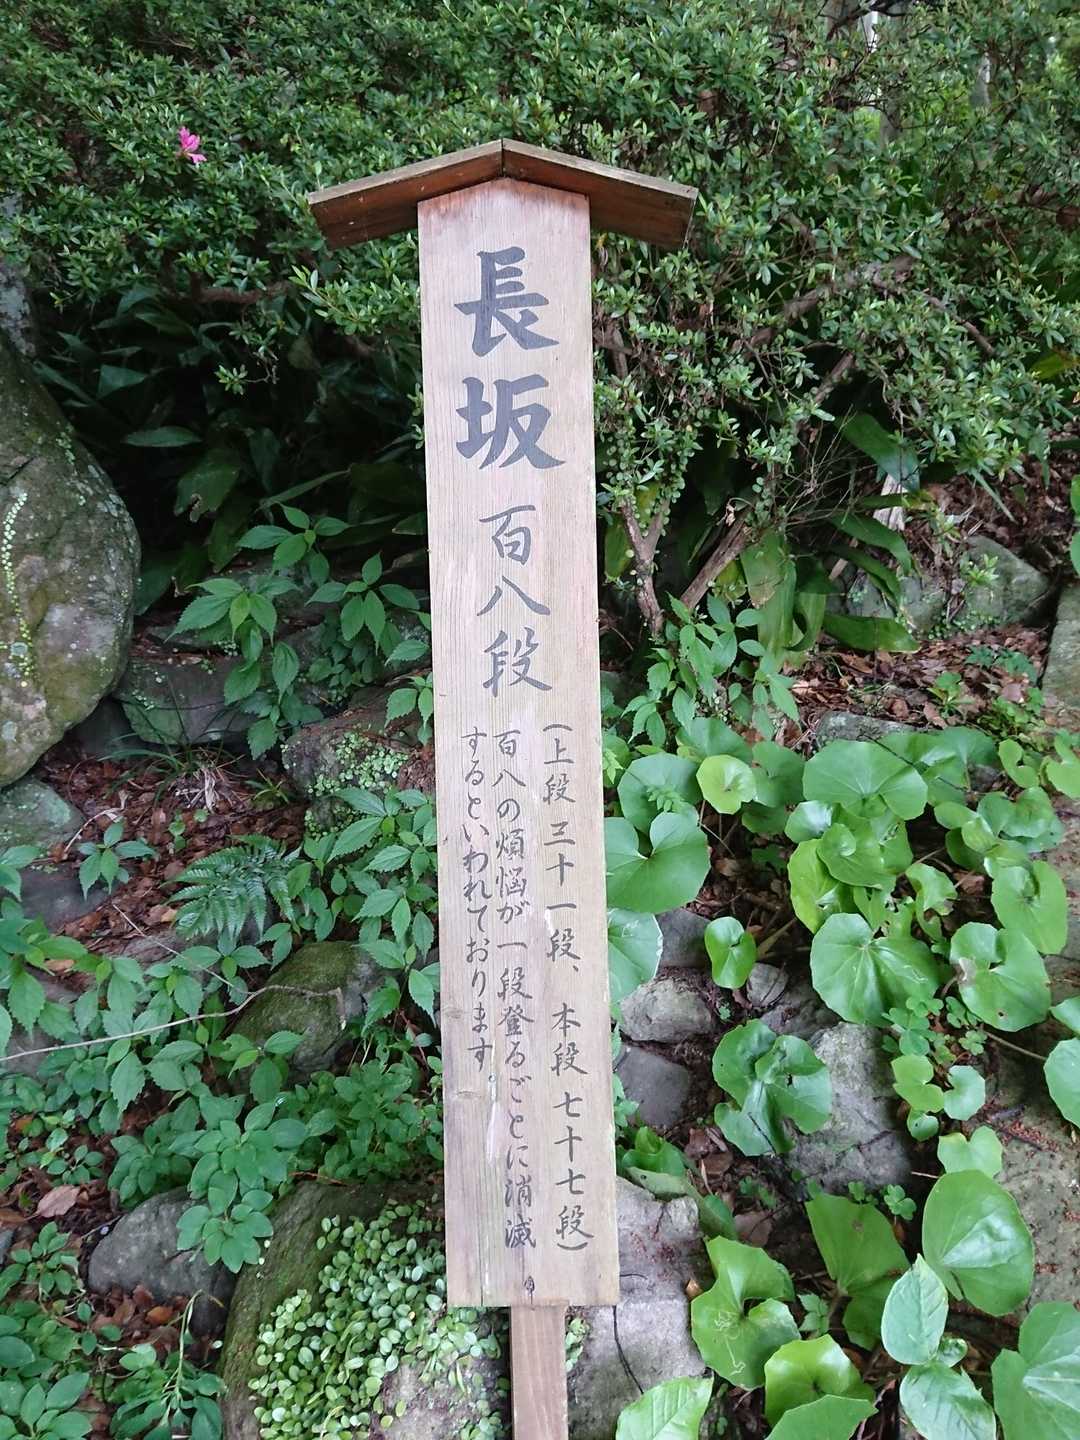 長坂 百八段
(上段三十一段、本段七十七段)
百八の煩悩が一段登るごとに消滅
するといわれております。